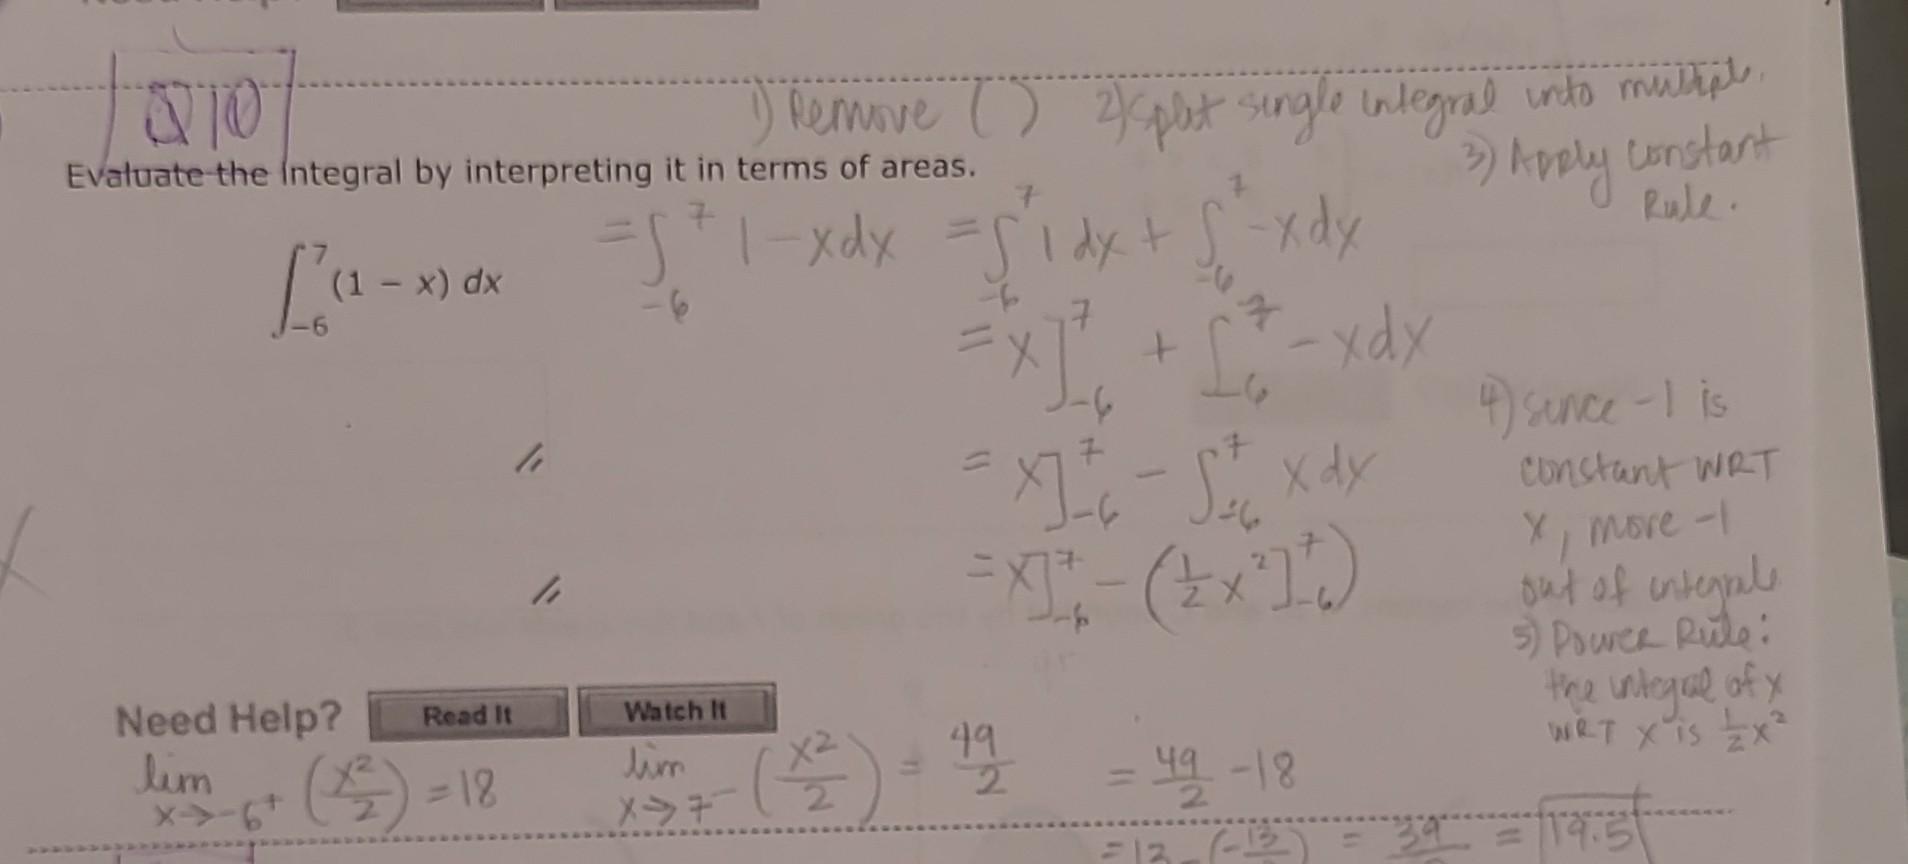 Q10
1) Remove ( ) 2) Split single integral into
3) Apply Constant Rule.
Evaluate the integral by interpreting it in terms of areas.
∫_{-6}^{7} (1 − x) dx = ∫_{-6}^{7} 1 - x dx = ∫_{-6}^{7} 1 dx + ∫_{-6}^{7} -x dx
= x]_{-6}^{7} + ∫_{-6}^{7} - x dx
= x]_{-6}^{7} - ∫_{-6}^{7} x dx
= x]_{-6}^{7} - (1/2 x²]_{-6}^{7})
4) since -1 is
constant WRT
x, move -1
out of integral
5) Power Rule:
the integral of x
WRT x is 1/2 x²
Need Help? Read It Watch It
lim x→-6⁺ (x²/2) = 18 lim x→7⁻ (x²/2) = 49/2 = 49/2 - 18
= 19.5